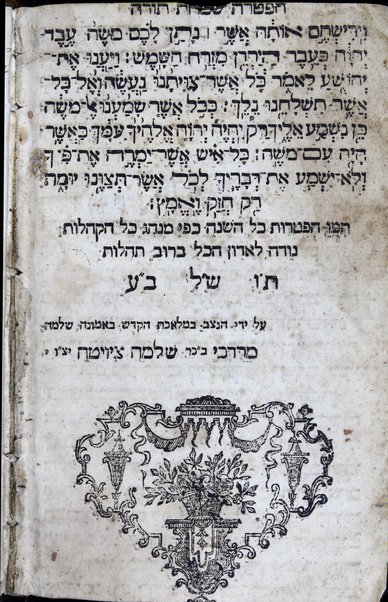 הפטרת שמחת תורה
וירישתם אותה אשר ׀ נתן לכם משה עבד
יהוה בעבר הירדן מזרח השמש׃ ויענו את־
יהושע לאמר כל אשר־צויתנו נעשה ואל־כל־
אשר תשלחנו נלך׃ ככל אשר שמענו אל־משה
כן נשמע אליך רק יהיה יהוה אלהיך עמך כאשר
היה עם־משה׃ כל־איש אשר־ימרה את־פיך
ולא־ישמע את־דבריך לכל אשר־תצונו יומת
רק חזק ואמץ׃
תמו הפטרות כל השנה כפי מנהג כל הקהלות
נודה לאדון הכל ברוב תהלות
ת״ו ש״ל ב״ע
על ידי הנצב במלאכת הקדש באמונה שלמה
מרדכי בכ״ר שלמה ציויטה יצ״ו